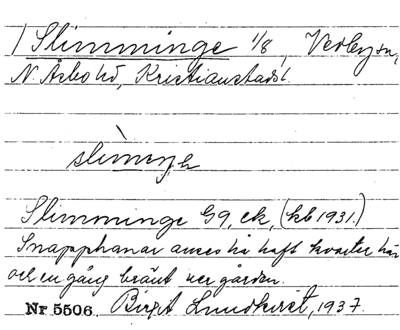 / Slimminge 1/8, Vedby sn,
N. Åsbo hd, Kristianstads l.
slìmeŋ,
Slimminge G9, ek, (kb 1931.)
Snapphanar anses ha haft kvarter här
och en gång bränt ner gården.
Nr 5506. Birgit Lundkvist, 1937.